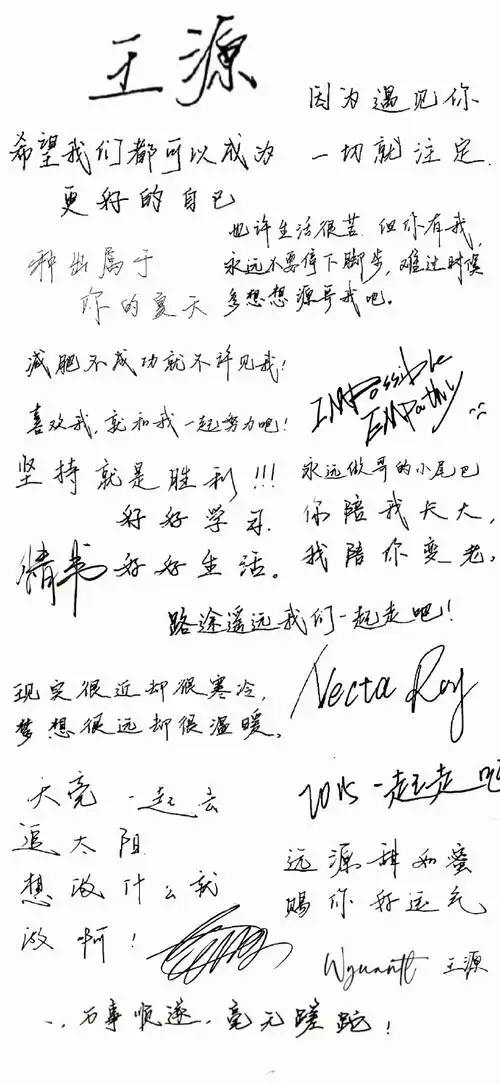 王源
因为遇见你
一切就注定.
希望我们都可以成为
更好的自己
也许生活很苦 但你有我,
永远不要停下脚步,难过时候
多想想源哥我吧。
种出属于
你的夏天
减肥不成功就不许见我!
IMPossible
EMPathy
喜欢我,就和我一起努力吧!
坚持就是胜利!!!
永远做哥的小尾巴
好好学习.
你陪我长大,
情书
好好生活。
我陪你变老,
路途遥远我们一起走吧!
现实很近却很寒冷,
梦想很远却很温暖。
Necta Roy
天亮一起去
追太阳
2015一起走吧
想做什么就
做啊!
远源甜如蜜
赐你好运气
王源
万事顺遂,毫无蹉跎!